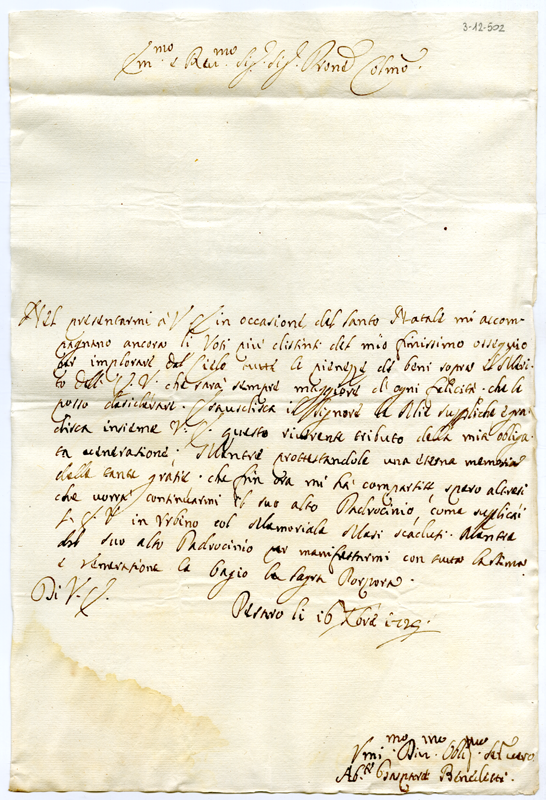 3-12-502
Em.mo e Rev.mo Sig.r Sig.r Prone Colmo.
Nel presentarmi à V. E. in occasione del santo Natale mi accom-
pagnano ancora li Voti più distinti del mio finissimo ossequio
per implorare dal Cielo tutte le pienezze de beni sopra il Meri-
to dell' E. V. che sarà sempre maggiore di ogni felicità che le
posso desiderare. Esaudisca il Signore le Mie suppliche e gra-
disca insieme V. E. questo riverente tributo della mia obliga-
ta venerazione; Mentre protestandole una eterna memoria
delle tante grazie che fin ora mi hà compartite spero altresi
che vorrà continuarmi il suo alto Padrocinio, come supplicai
V. E. in Urbino col Memoriale
del suo alto Padrocinio per manifestarmi con tutta la stima
e venerazione la bagio la sagra Porpora.
Di V. E.
Pesaro li 16 Xbre 1729.
Vmi.mo Div.mo Obli.mo Ser. vero
Ab.e Gaspare Benedetti.